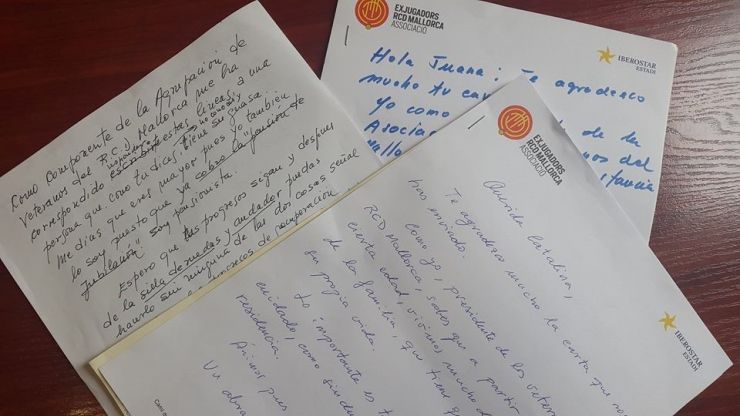 Como componente de la Agrupación de
Veteranos del R.C.D. Mallorca me ha
correspondido estas líneas, a una
persona que como tu dices, tiene su guasa.
Me dias que eres mayor pues yo también
lo soy puesto que ya cobro la "pensión de
Jubilación". Soy pensionista.
Espero que tus progresos sigan y despues
de la silla de ruedas y andador puedas
hacerlo sin ninguna de las dos cosas señal
procesos de recuperación
EXJUGADORS
RCD MALLORCA
ASSOCIACIÓ
IBEROSTAR
ESTADI
Hola Juana: Te agradezco
mucho tu
Yo como de la
Asocia
EXJUGADORS
RCD MALLORCA
ASSOCIACIÓ
Querida Catalina,
Te agradezco mucho la carta que
has enviado.
Como yo, presidente de los
RCD Mallorca, sabes que a partir
cierta edad, vivimos mucho
de la familia, que tiene
su propia vida.
Lo importante es
cuidado, como
residencia.
Ánimos pues
Un abra
IBEROSTAR
ESTADI